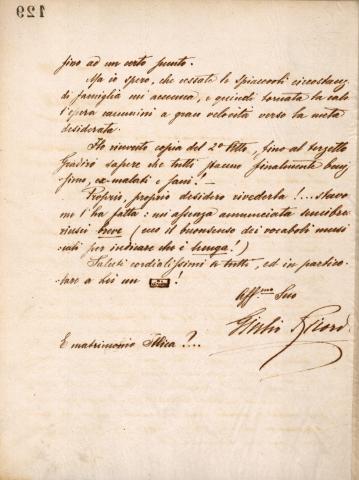 129
fino ad un certo punto.
Ma io spero, che cessate le spiacevoli circostanze
di famiglia mi accenna, e quindi tornata la calma
l'opera cammini a gran velocità verso la meta
desiderata.
Ho ricevuto copia del 2º Atto, fino al terzetto
Gradirò sapere che tutti stanno finalmente benis
simo, ex-malati e sani!
Proprio, proprio desidero rivederla!... stavo
me l'ha fatta: mi assenza annunciata
riuscì breve (uso il buonsenso dei vocaboli musi
cali per indicare che è lunga!)
Saluti cordialissimi a tutti, ed in partico
lare a Lei un !
Aff.mo Suo
Giulio Ricordi
E matrimonio Illica?...